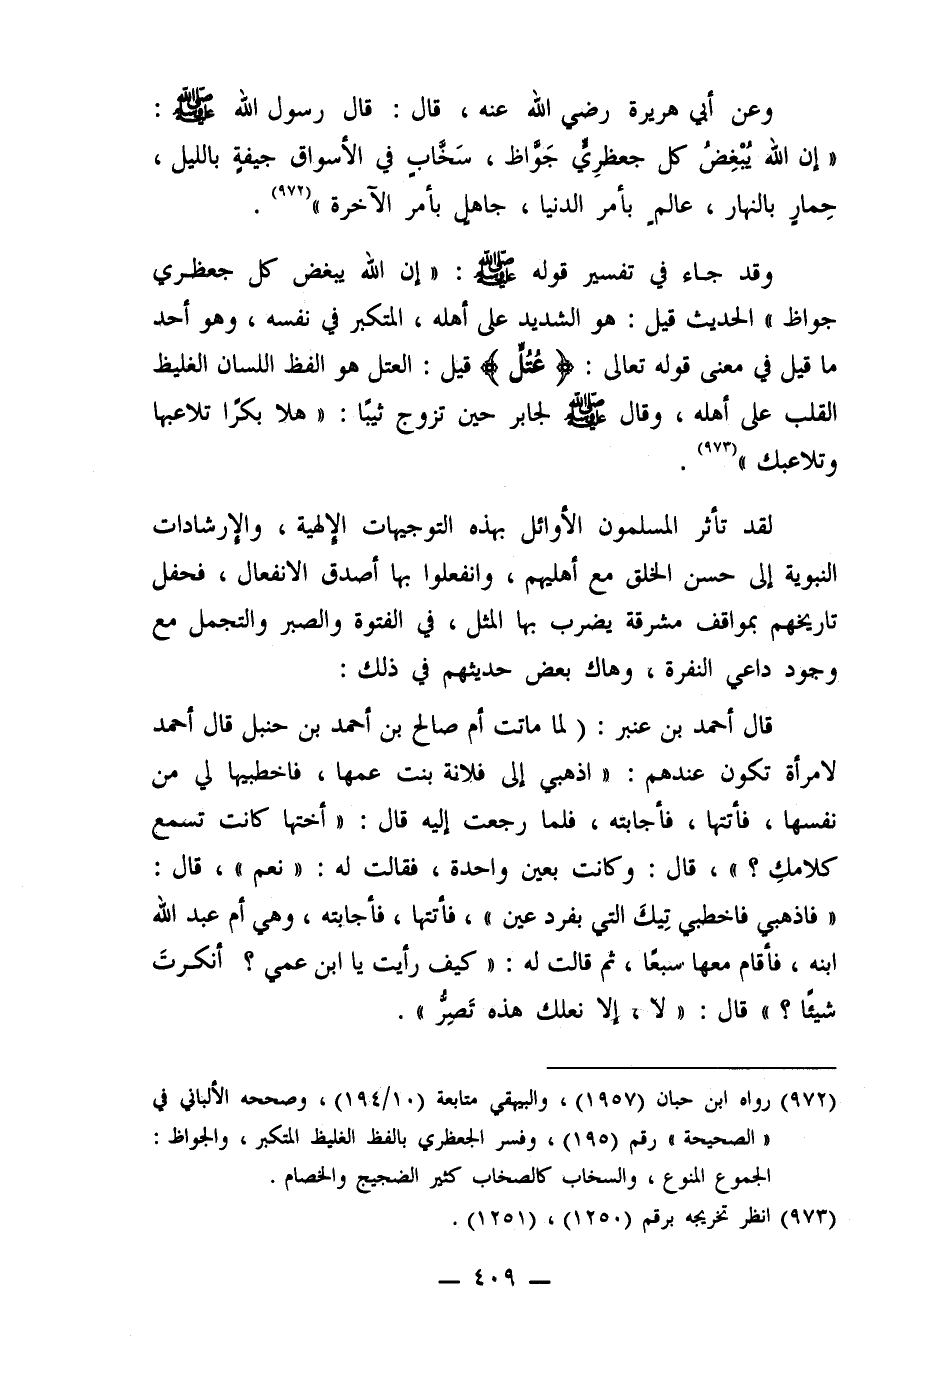 وعن أبي هريرة رضي الله عنه ، قال : قال رسول الله ﷺ :
« إن الله يُبْغِضُ كل جعظرِيٍّ جَوَّاظ ، سَخَّابٍ في الأسواق جيفةٍ بالليل ،
حِمارٍ بالنهار ، عالمٍ بأمر الدنيا ، جاهلٍ بأمر الآخرة »(٩٧٢) .
وقد جاء في تفسير قوله ﷺ : « إن الله يبغض كل جعظري
جواظ » الحديث قيل : هو الشديد على أهله ، المتكبر في نفسه ، وهو أحد
ما قيل في معنى قوله تعالى : ﴿ عُتُلٍّ ﴾ قيل : العتل هو الفظ اللسان الغليظ
القلب على أهله ، وقال ﷺ لجابر حين تزوج ثيبًا : « هلا بكرًا تلاعبها
وتلاعبك »(٩٧٣) .
لقد تأثر المسلمون الأوائل بهذه التوجيهات الإلهية ، والإرشادات
النبوية إلى حسن الخلق مع أهليهم ، وانفعلوا بها أصدق الانفعال ، فحفل
تاريخهم بمواقف مشرقة يضرب بها المثل ، في الفتوة والصبر والتجمل مع
وجود داعي النفرة ، وهاك بعض حديثهم في ذلك :
قال أحمد بن عنبر : ( لما ماتت أم صالح بن أحمد بن حنبل قال أحمد
لامرأة تكون عندهم : « اذهبي إلى فلانة بنت عمها ، فاخطبيها لي من
نفسها ، فأتتها ، فأجابته ، فلما رجعت إليه قال : « أختها كانت تسمع
كلامكِ ؟ » ، قال : وكانت بعين واحدة ، فقالت له : « نعم » ، قال :
« فاذهبي فاخطبي تِيكَ التي بفرد عين » ، فأتتها ، فأجابته ، وهي أم عبد الله
ابنه ، فأقام معها سبعًا ، ثم قالت له : « كيف رأيت يا ابن عمي ؟ أنكرتَ
شيئًا ؟ » قال : « لا ، إلا نعلك هذه تَصِرُّ » .
(٩٧٢) رواه ابن حبان (١٩٥٧) ، والبيهقي متابعة (١٩٤/١٠) ، وصححه الألباني في
« الصحيحة » رقم (١٩٥) ، وفسر الجعظري بالفظ الغليظ المتكبر ، والجواظ :
الجموع المنوع ، والسخاب كالصخاب كثير الضجيج والخصام .
(٩٧٣) انظر تخريجه برقم (١٢٥٠) ، (١٢٥١) .
— ٤٠٩ —